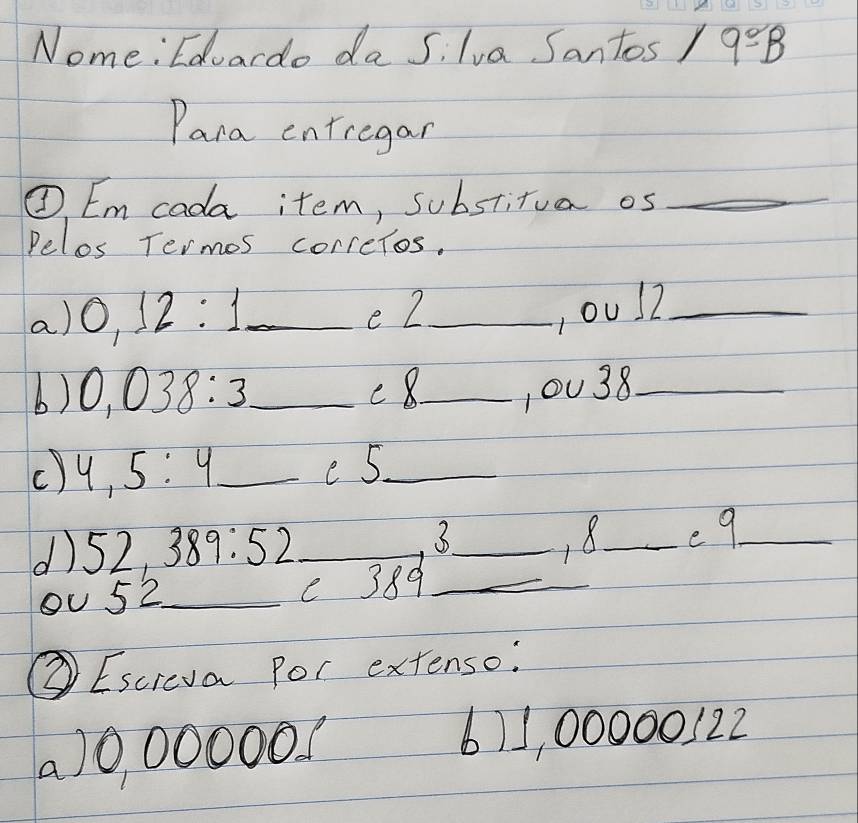 Nome: Eduardo da Silva Santos / 9º B
Para entregar
① Em cada item, substitua os ____
Pelos Termos corretos.
a) 0,12 : 1____ e 2____, ou 12____
b) 0,038 : 3____ e 8____, ou 38____
c) 4,5 : 4____ e 5____
d) 52,389 : 52____, 3____, 8____ e 9____
ou 52____ e 389____
② Escreva Por extenso:
a) 0,000001 b) 1,00000122